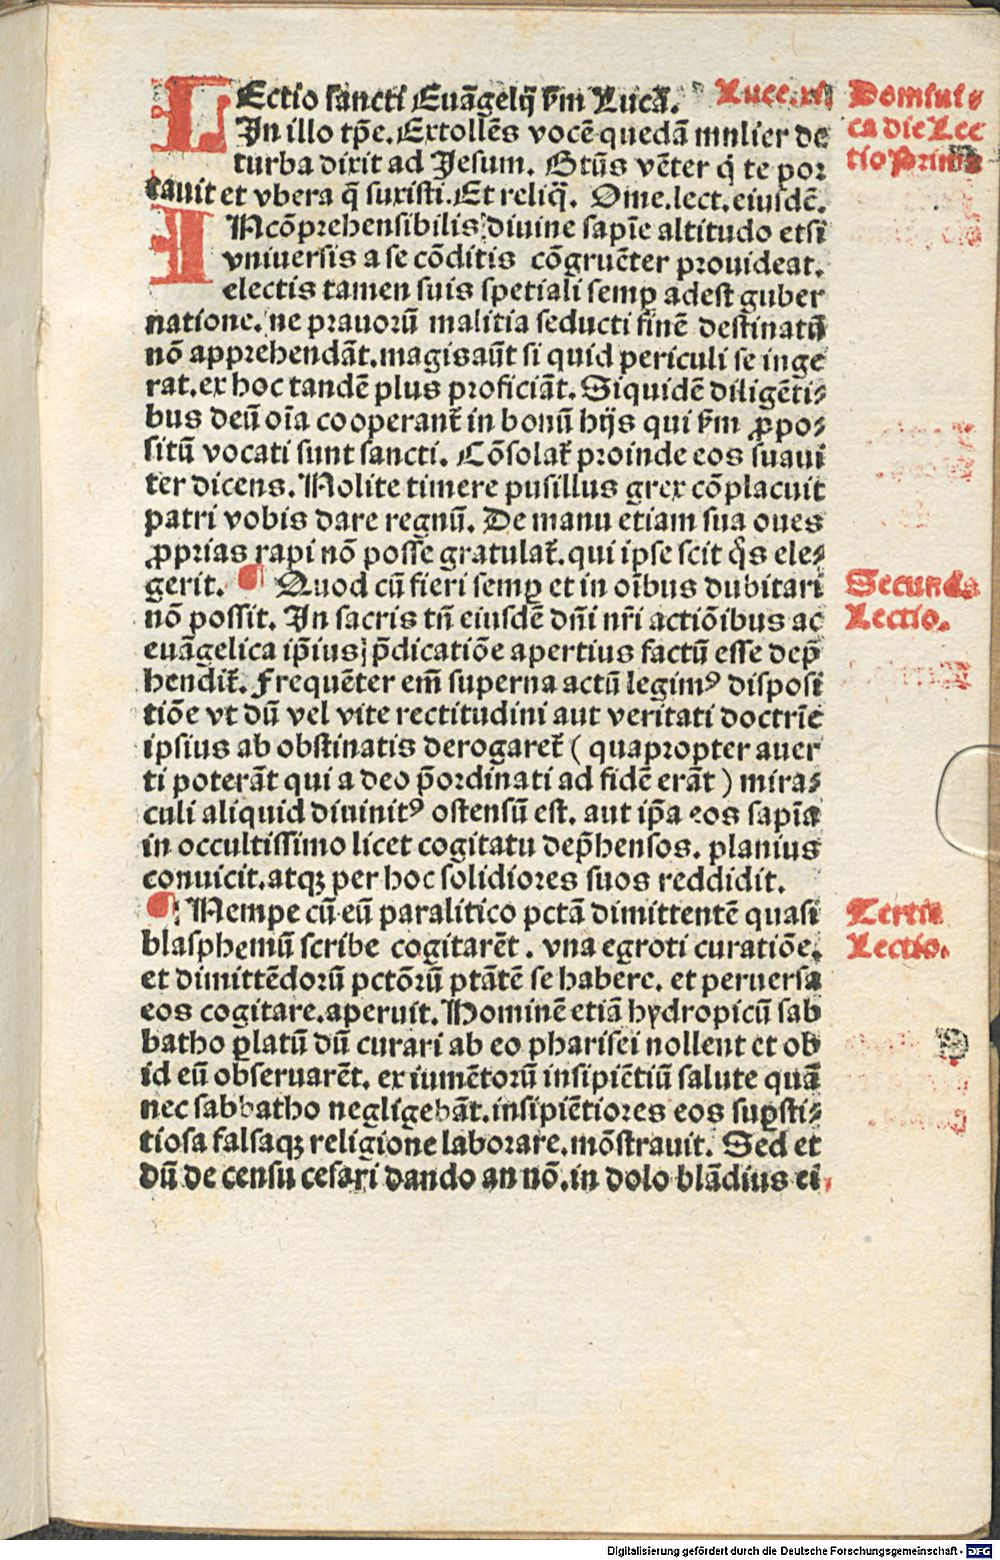 LEctio sancti Euāgelij ſm Lucā. Luce.xi
In illo tp̄e. Extollēs vocē quedā mulier de
turba dixit ad Jesum. Btūs vēter q̇ te por
tauit et vbera q̄ suxisti. Et reliq̄. Ome. lect. eiusdē.
INcōprehensibilis diuine sapīe altitudo etsi
vniuersis a se cōditis cōgruēter prouideat.
electis tamen suis spetiali semꝑ adest guber
natione. ne prauorū malitia seducti finē destinatū
nō apprehendāt. magis aūt si quid periculi se inge
rat. ex hoc tandē plus proficiāt. Siquidē diligēti⸗
bus deū oīa cooperant᷑ in bonū hijs qui ſm ꝓpo⸗
situ̅ vocati sunt sancti. Cōsolat᷑ proinde eos suaui
ter dicens. Nolite timere pusillus grex cōplacuit
patri vobis dare regnū. De manu etiam sua oues
ꝓprias rapi nō posse gratulat᷑. qui ipse scit q̊s ele⸗
gerit. ¶ Quod cū fieri semꝑ et in oībus dubitari
nō possit. In sacris tn̄ eiusdē dn̄i nr̄i actiōibus ac
euāgelica ip̄ius p̄dicatiōe apertius factū esse dep̄
hendit᷑. Frequēter em̄ superna actū legimꝰ disposi
tiōe vt dū vel vite rectitudini aut veritati doctrīe
ipsius ab obstinatis derogaret᷑ (quapropter auer
ti poterāt qui a deo p̄ordinati ad fidē erāt) mira⸗
culi aliquid diuinitꝰ ostensū est. aut ip̄a eos sapīa
in occultissimo licet cogitatu dep̄hensos. planius
conuicit. atqꝫ per hoc solidiores suos reddidit.
¶ Nempe cū eū paralitico pctā dimittentē quasi
blasphemū scribe cogitarēt. vna egroti curatiōe.
et dimittēdorū pctōrū ptātē se habere. et peruersa
eos cogitare. aperuit. Hominē etiā hydropicū sab
batho ꝑlatū dū curari ab eo pharisei nollent et ob
id eū obseruarēt. ex iumētorū insipiētiū salute quā
nec sabbatho negligebāt. insipiētiores eos suꝑsti⸗
tiosa falsaqꝫ religione laborare. mōstrauit. Sed et
dū de censu cesari dando an nō. in dolo blādius ei
Domini⸗
ca die Lec
tio prima
Secunda
Lectio.
Tertia
Lectio.
Digitalisierung gefördert durch die Deutsche Forschungsgemeinschaft - DFG